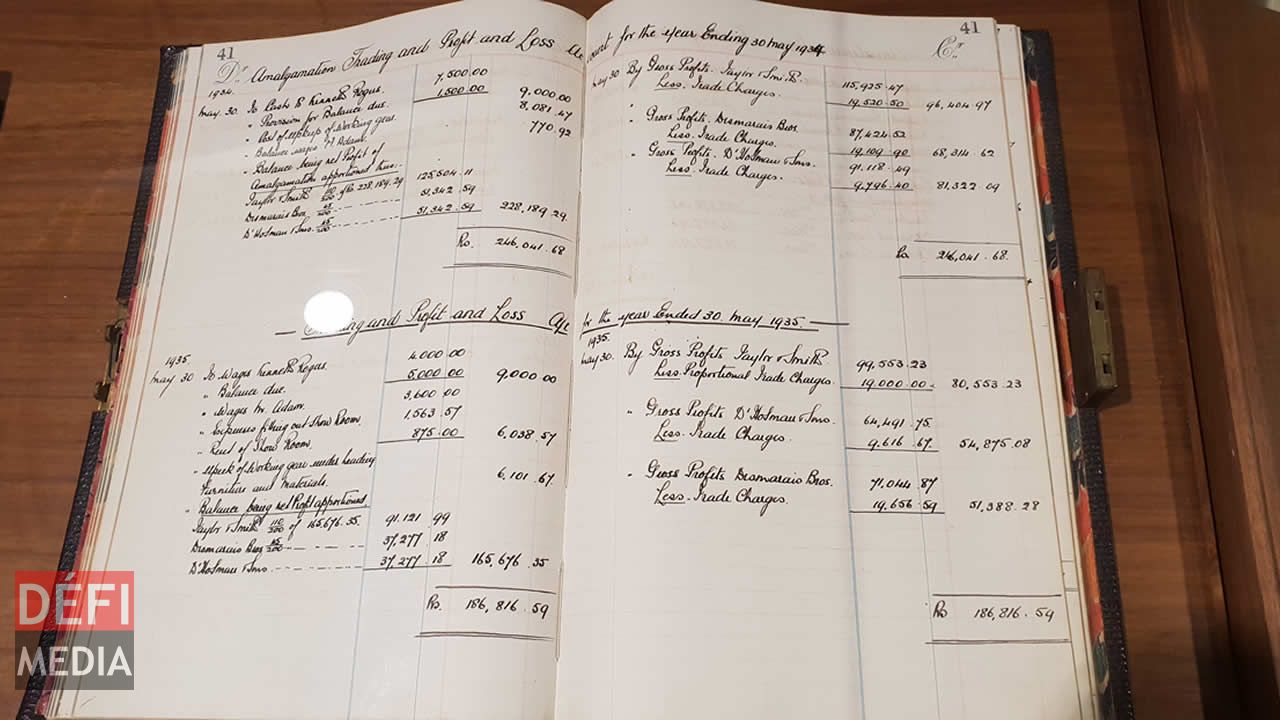 41
Dr Amalgamation Trading and Profit and Loss Account for the year Ending 30 May 1934
41
Cr
1934.
May. 30. To Cash to Kenneth Rogus. 7,500.00
" Provision for Balance due. 1,500.00 9,000.00
" Cost of upkeep of Working gear. 8,081.47
" Balance wages Adam. 770.92
" Balance being net Profit of
Amalgamation apportioned thus:
Taylor & Smith 110/200 of Rs 228,189.29 125,504.11
Desmarais Bros 45/200 51,342.59
D'Hotman & Sons. 45/200 51,342.59 228,189.29
Rs. 246,041.68
May 30 By Gross Profits. Taylor & Smith. 115,925.47
Less. Trade Charges. 19,520.50 96,404.97
" Gross Profits. Desmarais Bros. 87,424.52
Less. Trade Charges. 19,109.90 68,314.62
" Gross Profits. D'Hotman & Sons. 91,118.49
Less. Trade Charges. 9,796.40 81,322.09
Rs 246,041.68.
Trading and Profit and Loss A/c for the year Ended 30. May 1935.
1935.
May 30 To Wages Kenneth Rogus. 4,000.00
" Balance due. 5,000.00 9,000.00
" Wages Mr. Adam. 3,600.00
" Expenses fitting out Show Room 1,563.57
" Rent of Show Room. 875.00 6,038.57
" Upkeep of Working gear under heading
Furniture and Materials. 6,101.67
" Balance being net Profit apportioned
Taylor & Smith 110/200 of 165,676.35. 91,121.99
Desmarais Bros 45/200 37,277.18
D'Hotman & Sons 37,277.18 165,676.35
Rs. 186,816.59
1935.
May 30. By Gross Profits Taylor & Smith. 99,553.23
Less. Proportional Trade Charges. 19,000.00 80,553.23
" Gross Profits D'Hotman & Sons. 64,491.75
Less. Trade Charges. 9,616.67 54,875.08
" Gross Profits Desmarais Bros. 71,044.87
Less. Trade Charges. 19,656.59 51,388.28
Rs 186,816.59
DÉFI
MEDIA